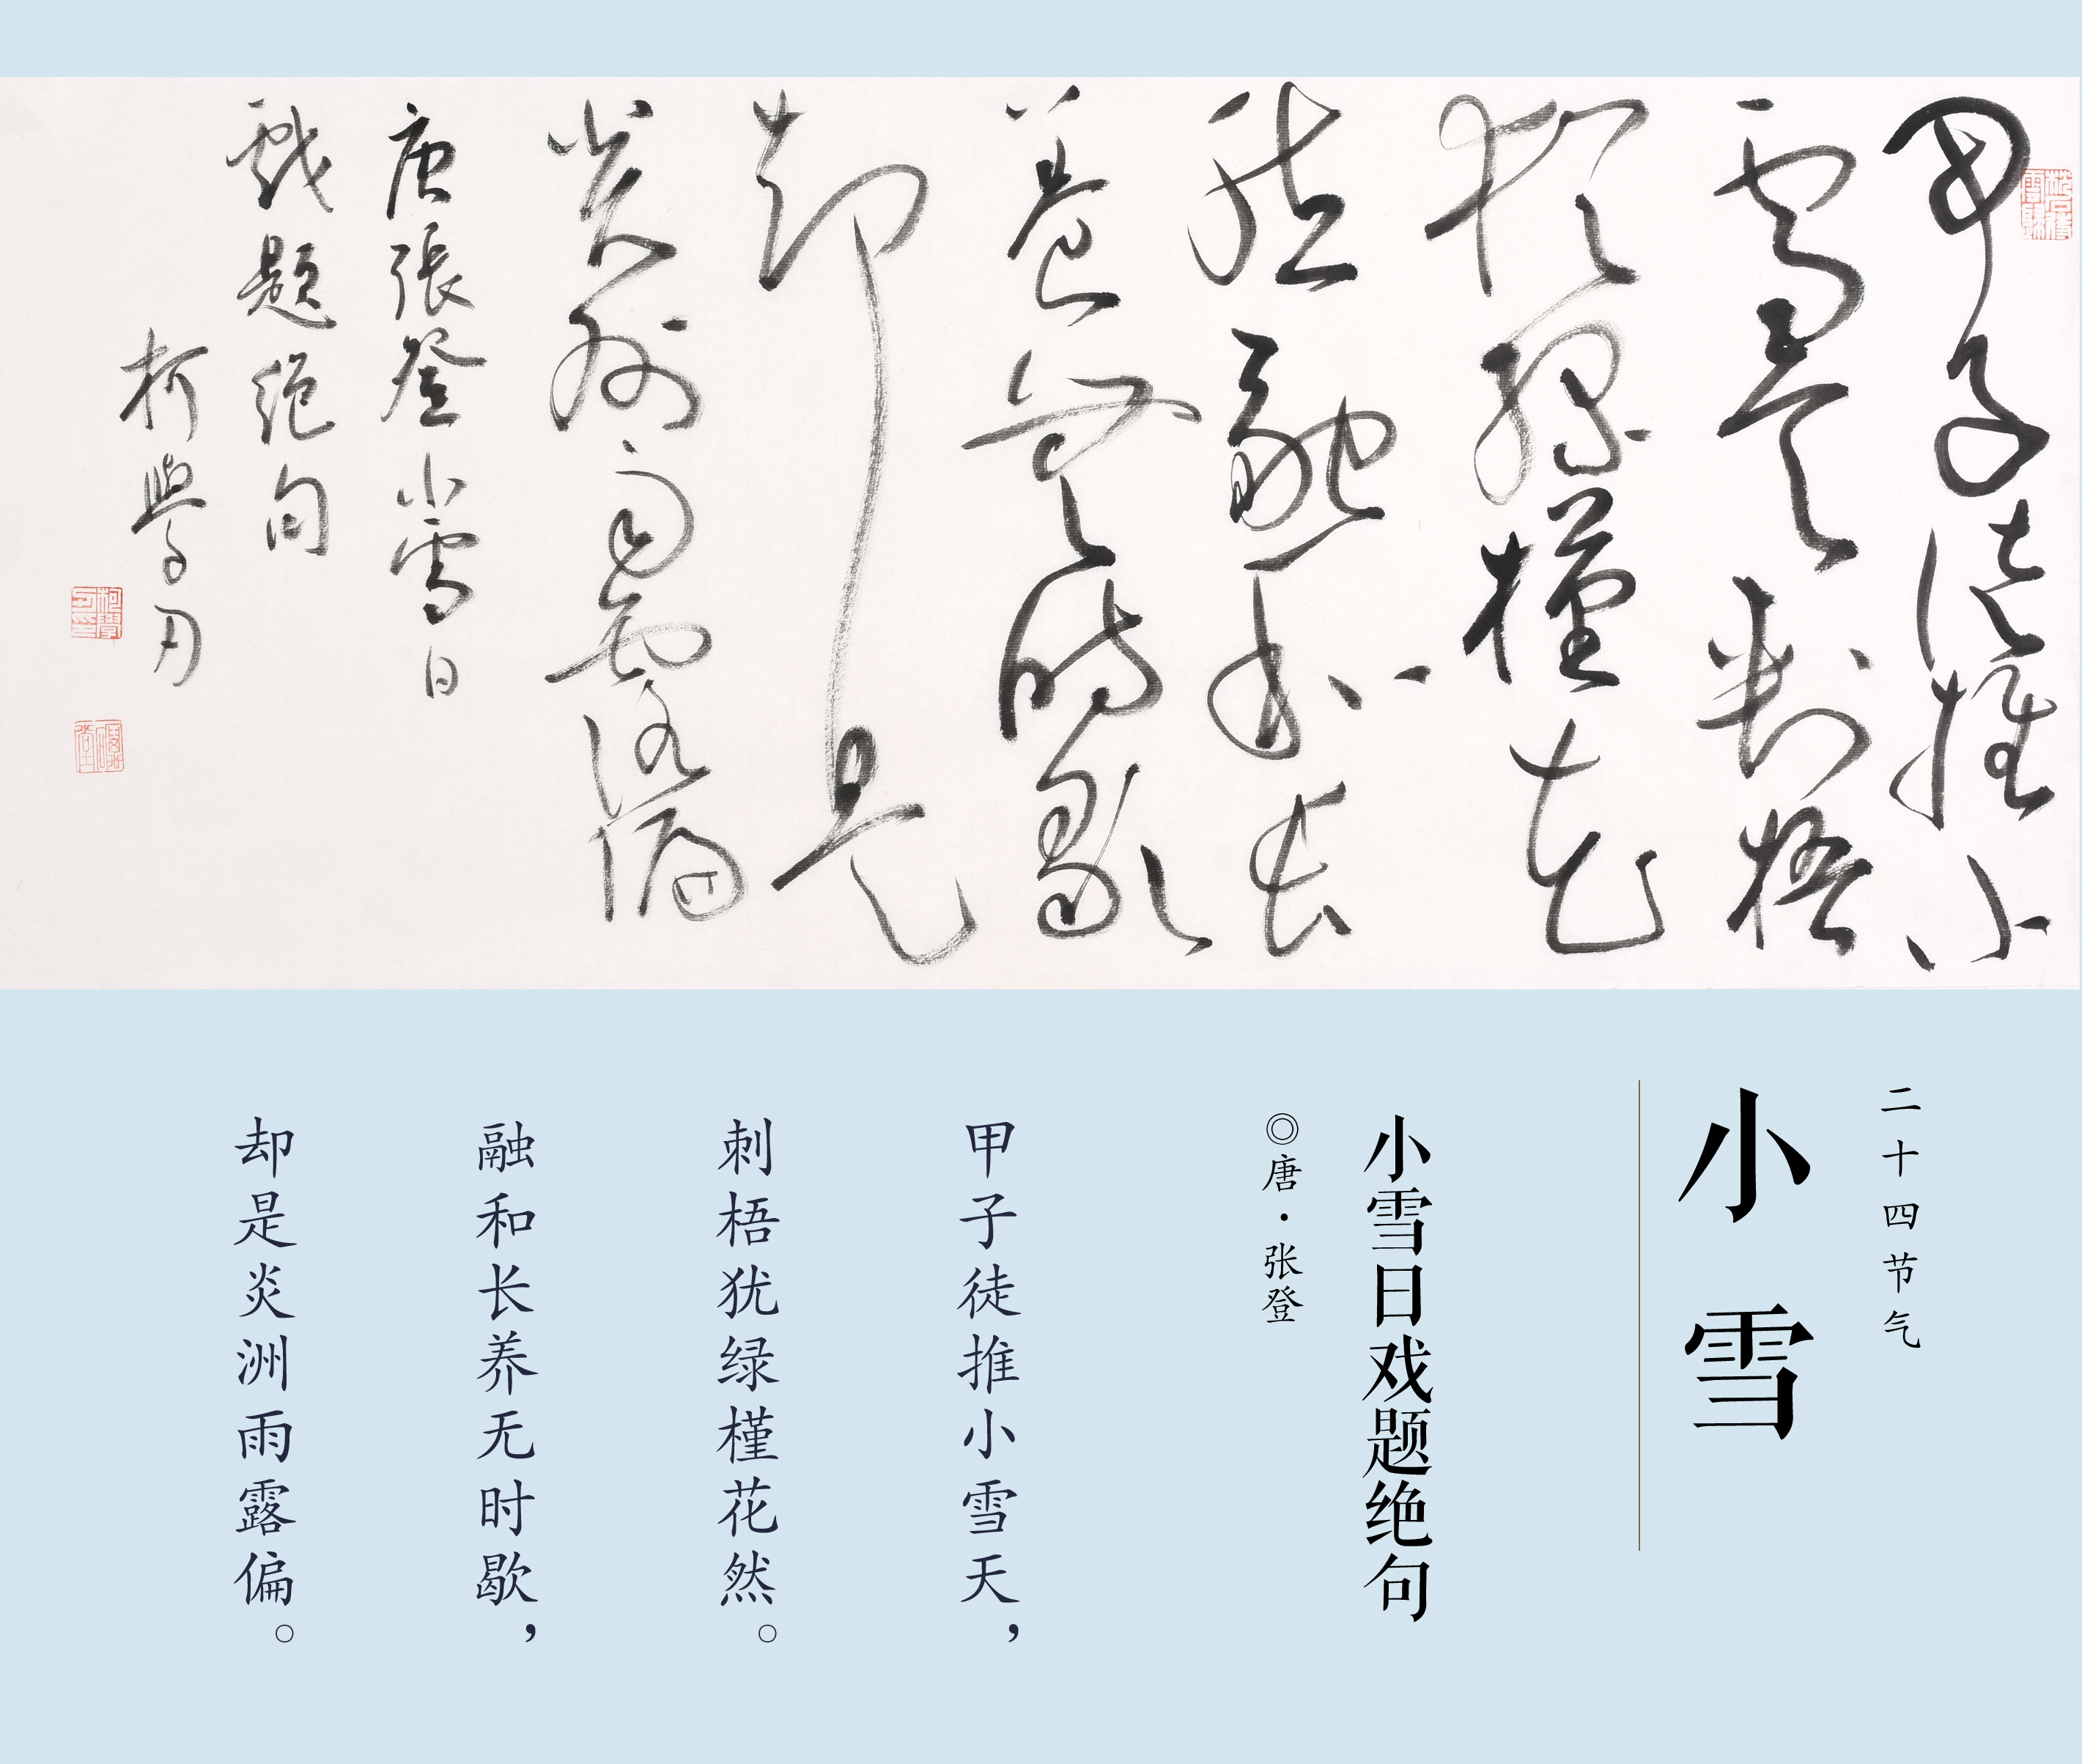 甲子徒推小
雪天刺梧
猶綠槿花
然融和長
養無時歇
却是
炎洲雨露偏
唐張登小雪日
戲題絕句
柯學刃
二十四节气
小雪
小雪日戏题绝句
◎唐·张登
甲子徒推小雪天，
刺梧犹绿槿花然。
融和长养无时歇，
却是炎洲雨露偏。